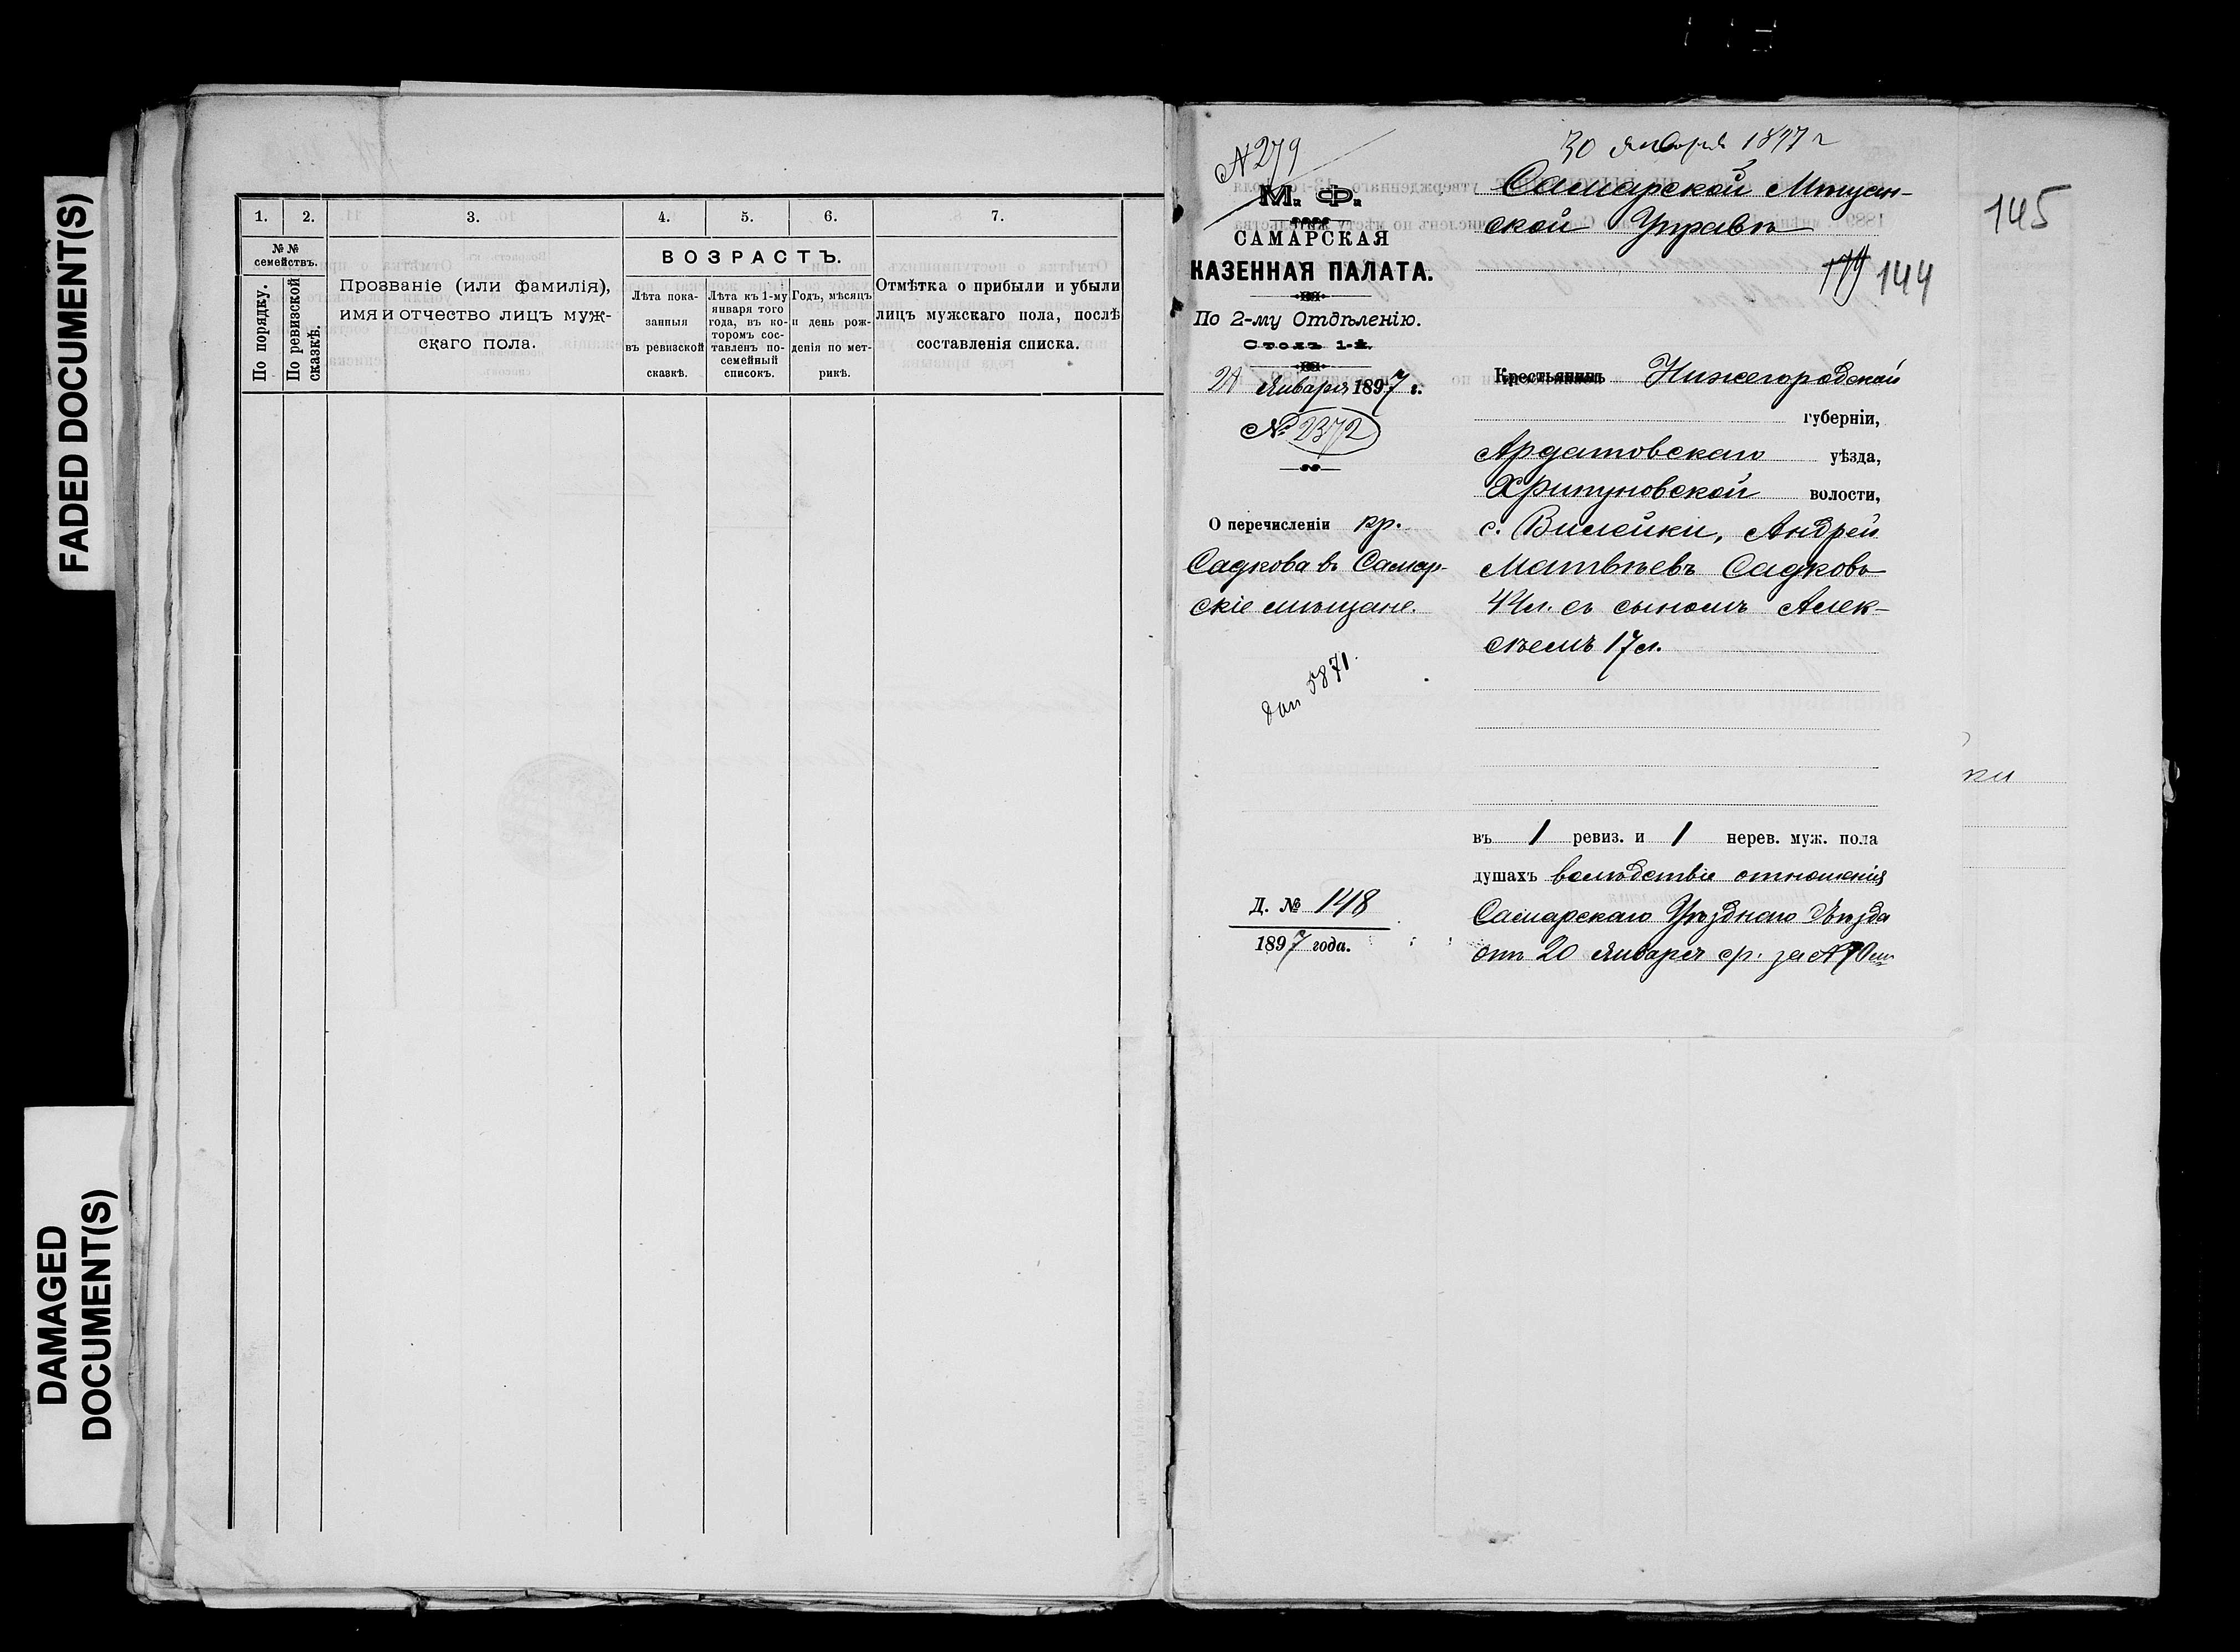 FADED DOCUMENT(S)
DAMAGED
DOCUMENT(S)
1.
2.
3.
4.
5.
6.
7.
№ №
семействъ.
По порядку.
По ревизской
сказкѣ.
Прозваніе (или фамилія),
имя и отчество лицъ муж-
скаго пола.
ВОЗРАСТЪ.
Лѣта пока-
занныя
въ ревизской
сказкѣ.
Лѣта къ 1-му
января того
года, въ ко-
торомъ сос-
тавленъ по-
семейный
списокъ.
Годъ, мѣсяцъ
и день рож-
денія по мет-
рикѣ.
Отмѣтка о прибыли и убыли
лицъ мужскаго пола, послѣ
составленія списка.
№ 279
М. Ф.
САМАРСКАЯ
КАЗЕННАЯ ПАЛАТА.
По 2-му Отдѣленію.
Столъ 1-й.
Января 1897 г.
№ 2372
О перечисленіи кр.
Садкова въ Самар-
скіе мѣщане.
5871.
Д. № 148
1897 года.
30 января 1897 г
Самарской Мѣщан-
ской Управѣ
144
145
Крестьянинъ Нижегородской
губерніи,
Ардатовскаго уѣзда,
Хрипуновской волости,
с. Вилейки, Андрей
Матвѣевъ Садковъ
44 л. съ сыномъ Алек-
сѣемъ 17 л.
въ 1 ревиз. и 1 нерев. муж. пола
душахъ вслѣдствіе отношенія
Самарскаго Уѣзднаго Съѣзда
отъ 20 Января с/г. за №
ки